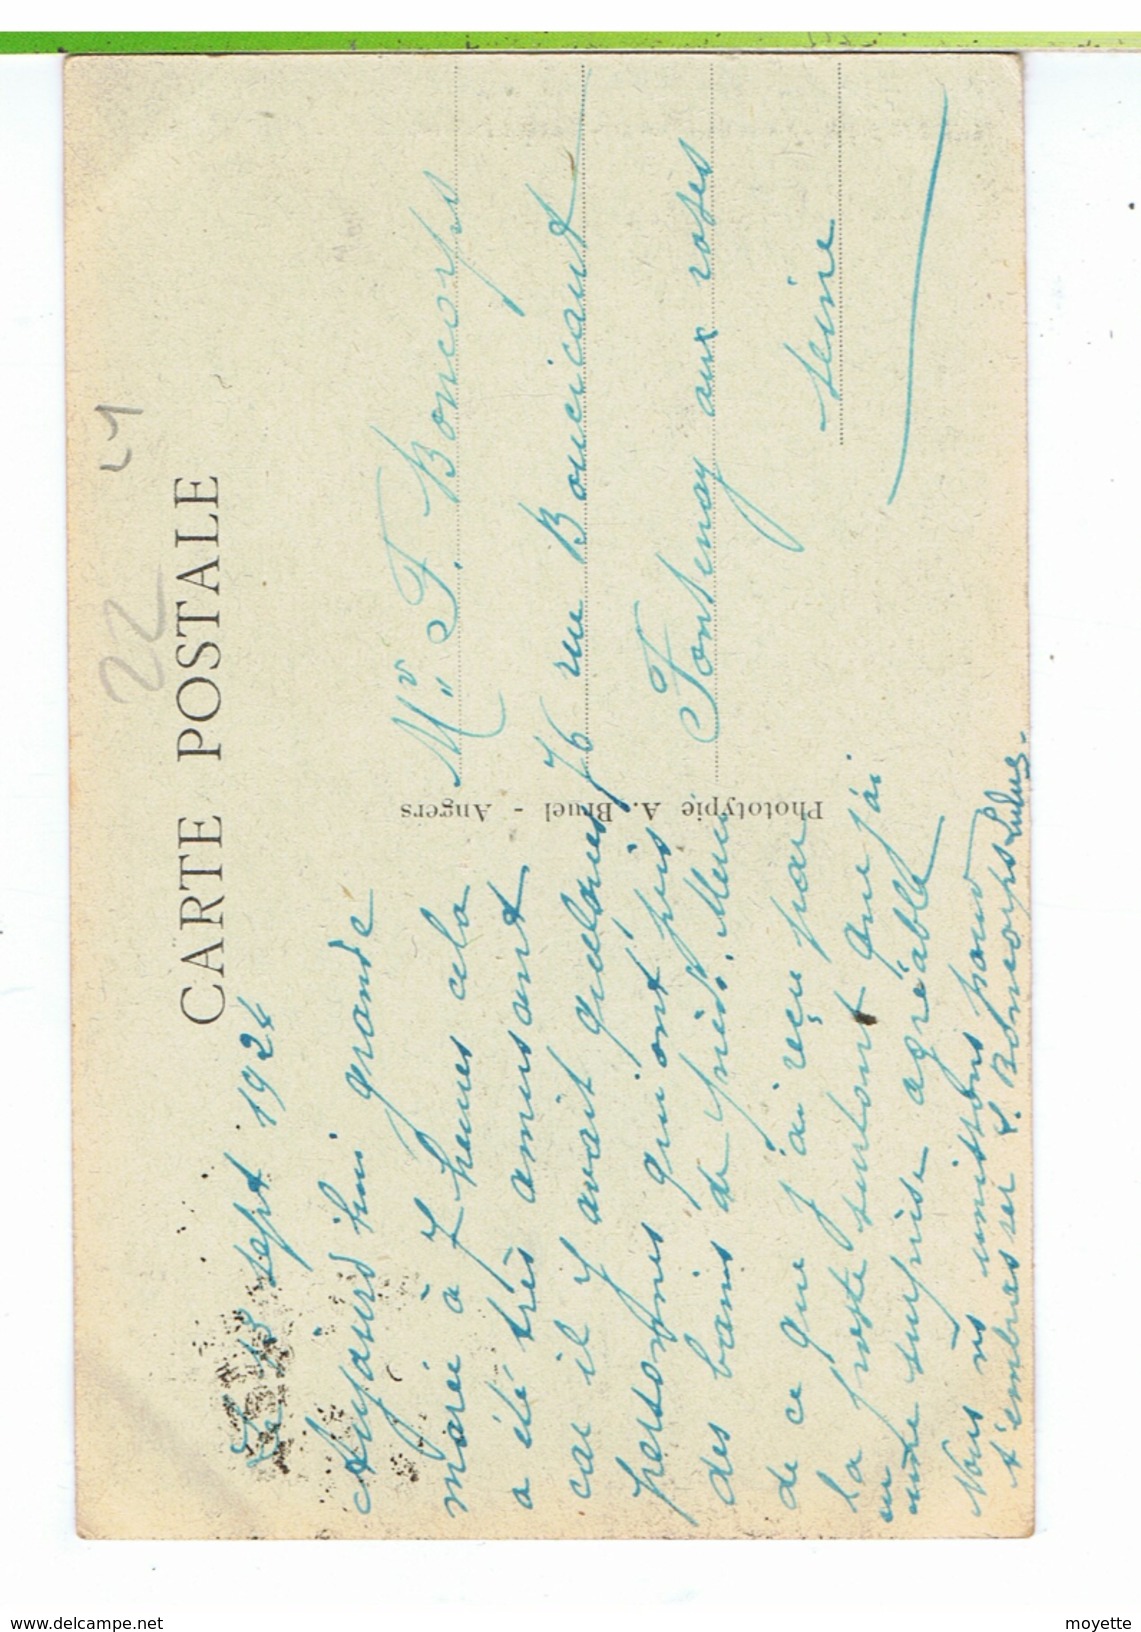 CARTE POSTALE
22
Le 13 sept 1924
Aujourd'hui grande
marée à 7 heures cela
a été très amusant
car il y avait quelques
personnes qui ont pris
des bains de pieds. Merci
de ce que j'ai reçu par
la poste surtout que j'ai
eu
une surprise agréable
Nous ns unissons pour
t'embrasser L. Boncorps Lulus.
Phototypie A. Bruel - Angers
Mr F. Boncorps
76 rue Boucicaut
Fontenay aux roses
Seine
www.delcampe.net
moyette